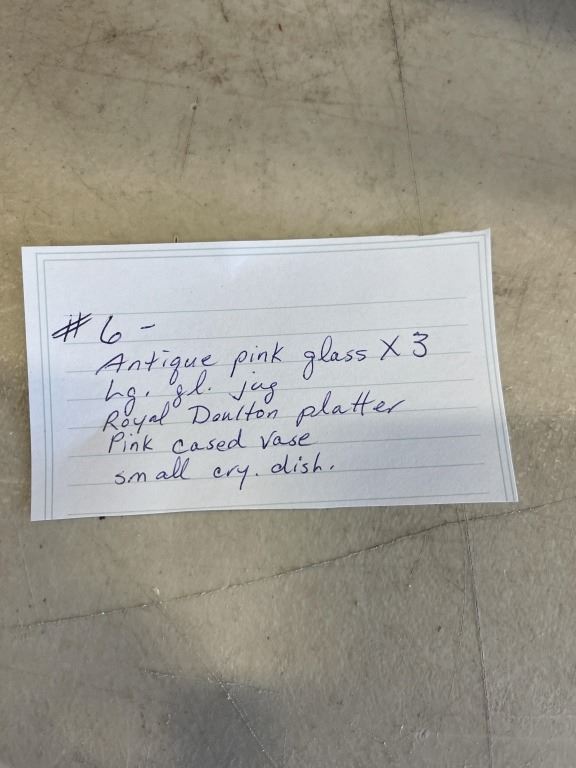 #6 -
Antique pink glass X 3
Lg. gl. jug
Royal Doulton platter
Pink cased vase
small cry. dish.